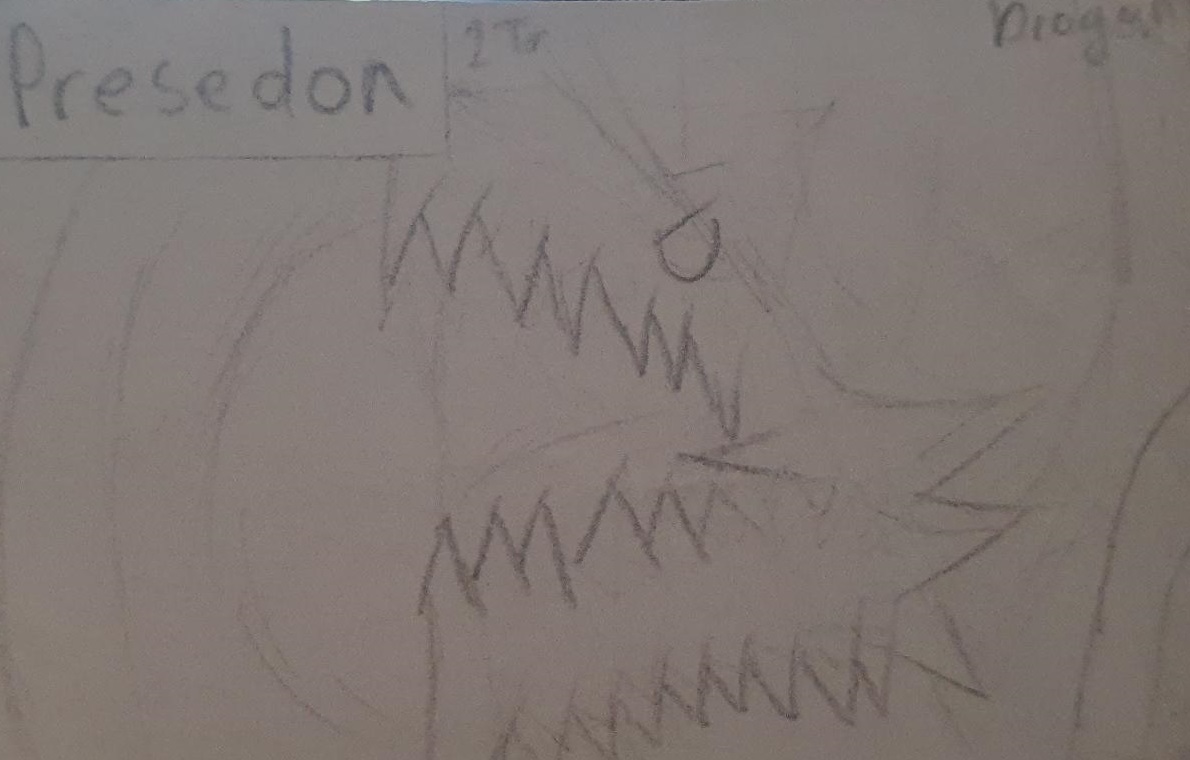 Presedon
2 Tr
Dragon